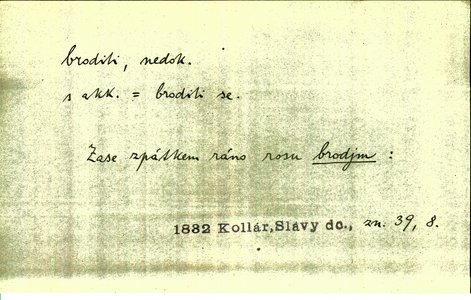 broditi, nedok.
s akk. = broditi se.
Zase zpátkem ráno rosu brodjm :
1832 Kollár,Slávy dc., zn. 39, 8.